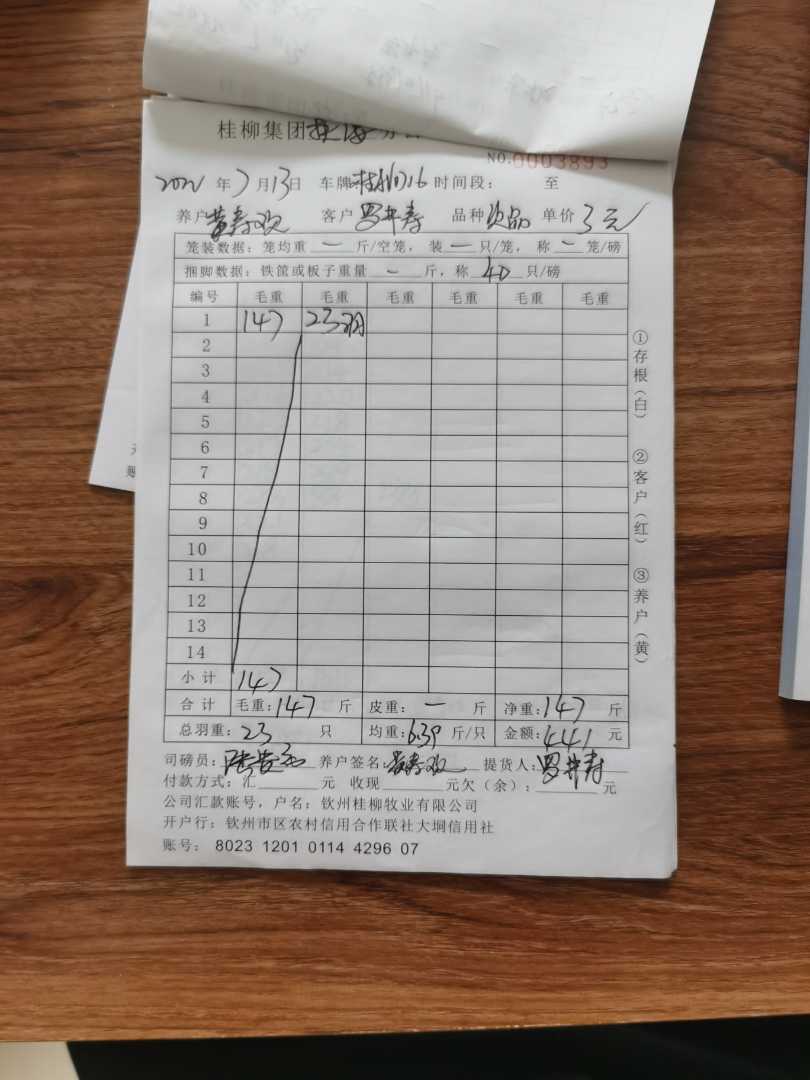 桂柳集团
NO.0003893
2021年7月13日 车牌 16 时间段： 至
养户 黄寿欢 客户 罗井寿 品种 次品 单价 3元
笼装数据：笼均重 一 斤/空笼，装 一 只/笼，称 一 笼/磅
捆脚数据：铁筐或板子重量 一 斤，称 40 只/磅
编号 毛重 毛重 毛重 毛重 毛重 毛重
1 147 23羽
2
3
4
5
6
7
8
9
10
11
12
13
14
小计 147
合计 毛重：147 斤 皮重：一 斤 净重：147 斤
总羽重：23 只 均重：6.39 斤/只 金额：441 元
司磅员： 养户签名：黄寿欢 提货人：罗井寿
付款方式：汇 元 收现 元欠（余）： 元
公司汇款账号，户名：钦州桂柳牧业有限公司
开户行：钦州市区农村信用合作联社大垌信用社
账号： 8023 1201 0114 4296 07
①存根（白）
②客户（红）
③养户（黄）